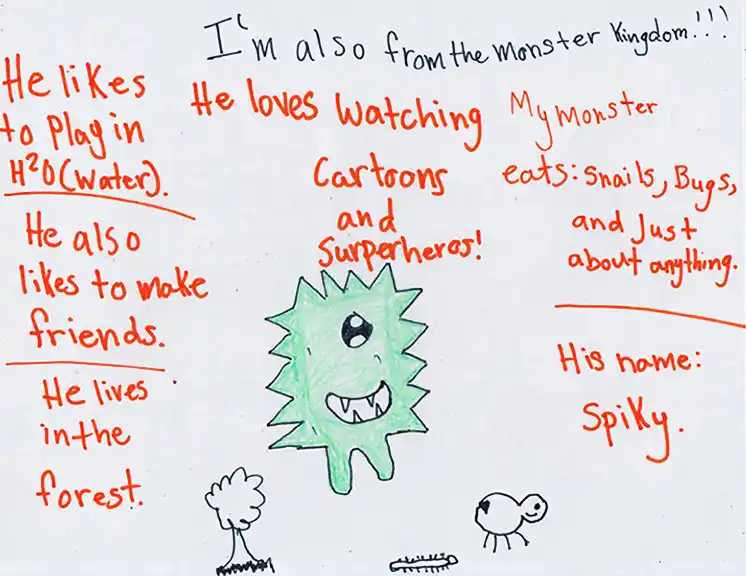 I'm also from the monster Kingdom!!!
He likes
to Play in
H²O(Water).
He also
likes to make
friends.
He lives
in the
forest.
He loves Watching
Cartoons
and
Surperheros!
My monster
eats: Snails, Bugs,
and Just
about anything.
His name:
Spiky.